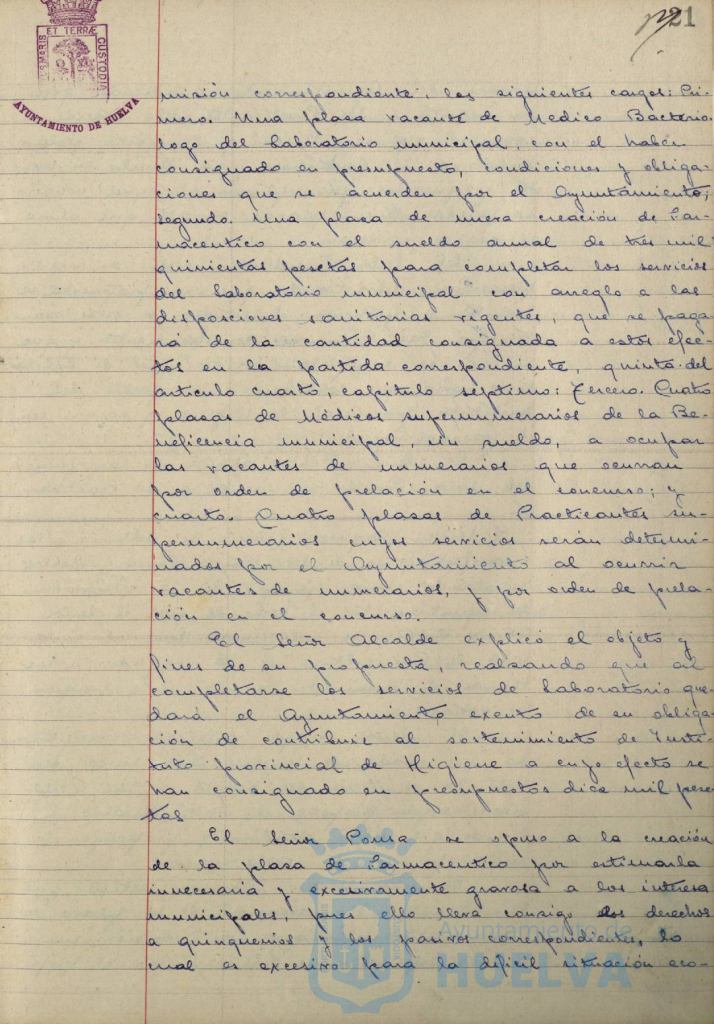 21
ET TERRÆ
S MARIS
CUSTODIA
AYUNTAMIENTO DE HUELVA
misión correspondiente, los siguientes cargos: Pri-
mero. Una plaza vacante de Medico Bacterio-
logo del Laboratorio municipal, con el haber
consignado en presupuesto, condiciones y obliga-
ciones que se acuerden por el Ayuntamiento;
segundo. Una plaza de nueva creación de Far-
maceutico con el sueldo anual de tres mil
quinientas pesetas para completar los servicios
del Laboratorio municipal con arreglo a las
disposciones sanitarias vigentes, que se paga-
rá de la cantidad consignada a estos efec-
tos en la partida correspondiente, quinta del
articulo cuarto, capitulo septimo: Tercero. Cuatro
plazas de Médicos supernumerarios de la Be-
neficencia municipal, sin sueldo, a ocupar
las vacantes de numerarios que ocurran
por orden de prelación en el concurso; y
cuarto. Cuatro plazas de Practicantes su-
pernumerarios cuyos servicios serán determi-
nados por el Ayuntamiento al ocurrir
vacantes de numerarios, y por orden de prela-
ción en el concurso.
El Señor Alcalde explicó el objeto y
fines de su propuesta, realzando que al
completarse los servicios de Laboratorio que-
dará el Ayuntamiento exento de su obliga-
ción de contribuir al sostenimiento de Insti-
tuto provincial de Higiene a cuyo efecto se
han consignado en presupuestos diez mil pese-
tas
El Señor Ponsa se opuso a la creación
de la plaza de Farmaceutico por estimarla
innecesaria y excesivamente gravosa a los interes
municipales, pues ello lleva consigo los derechos
a quinquenios y los pasivos correspondientes, lo
cual es excesivo para la dificil situación eco-
Ayuntamiento de
HUELVA